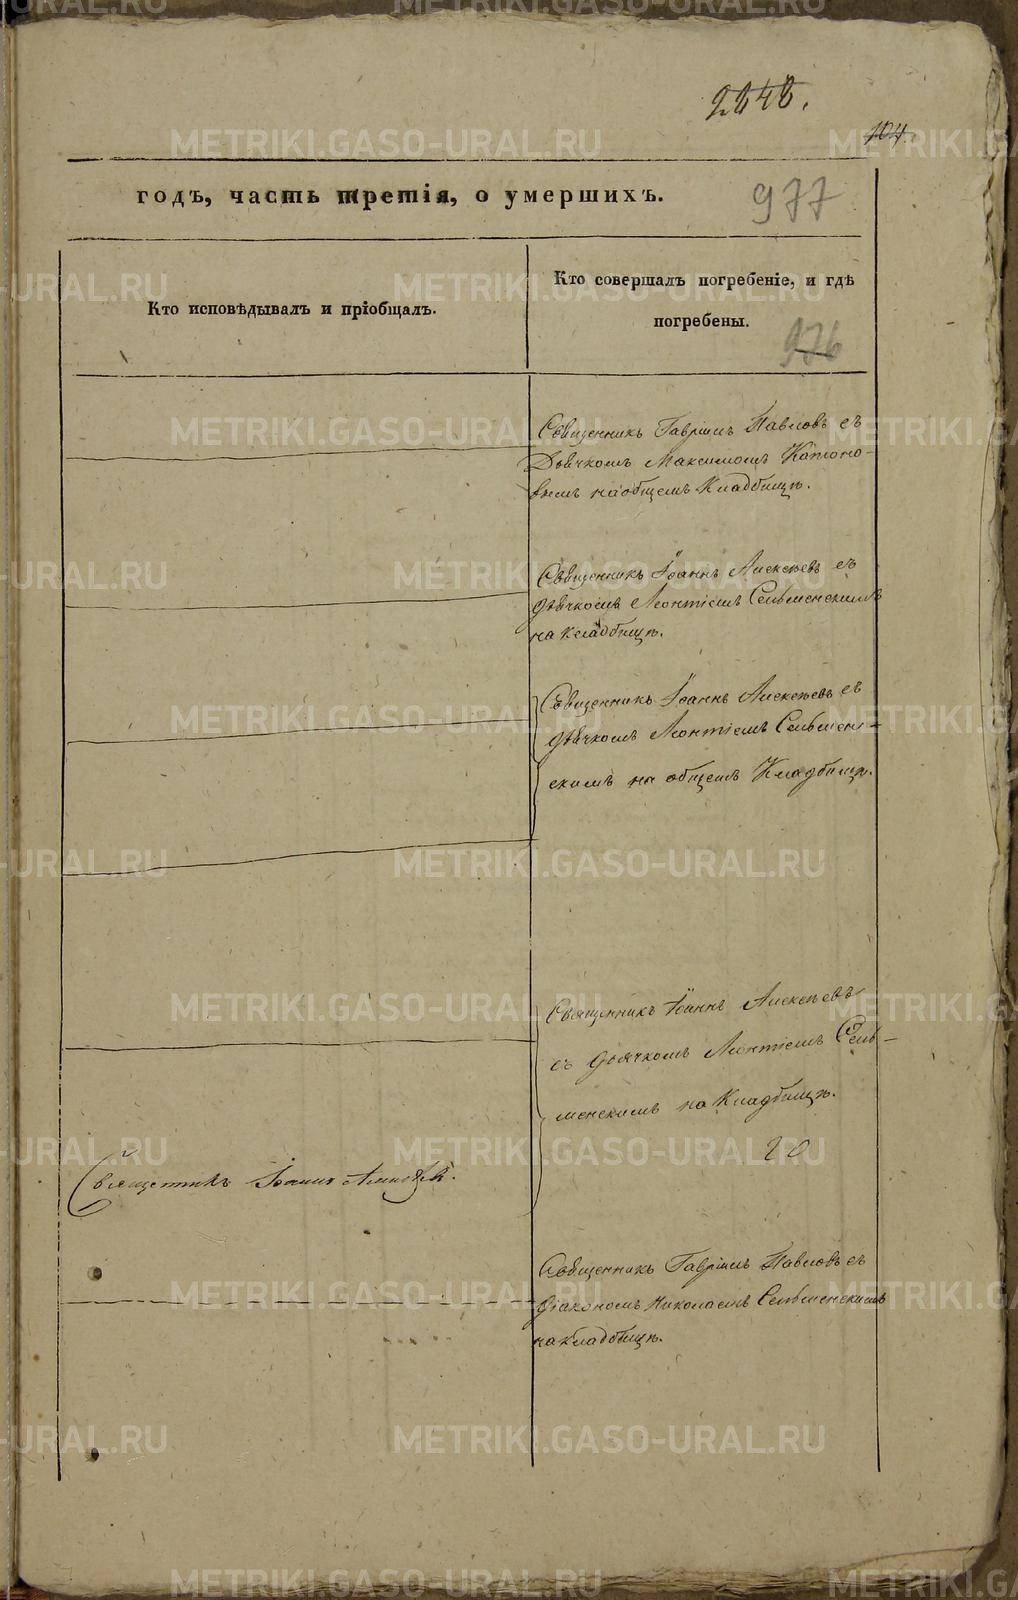 2848.
104.
годъ, часть третія, о умершихъ.
977
Кто исповѣдывалъ и пріобщалъ.
Кто совершалъ погребеніе, и гдѣ
погребены.
976
Священникъ Гавріилъ Павловъ съ
Дьячкомъ Максимомъ Катоно-
вымъ на общемъ Кладбищѣ.
Священникъ Іоаннъ Алексѣевъ съ
дьячкомъ Леонтіемъ Сельменскимъ
на кладбищѣ.
Священникъ Іоаннъ Алексѣевъ съ
дьячкомъ Леонтіемъ Сельмен-
скимъ на общемъ Кладбищѣ.
Священникъ Іоаннъ Алексѣевъ
съ дьячкомъ Леонтіемъ Сель-
менскимъ на Кладбищѣ.
20
Священникъ Іоаннъ
Священникъ Гавріилъ Павловъ съ
діакономъ Николаемъ Сельменскимъ
на кладбищѣ.
METRIKI.GASO-URAL.RU